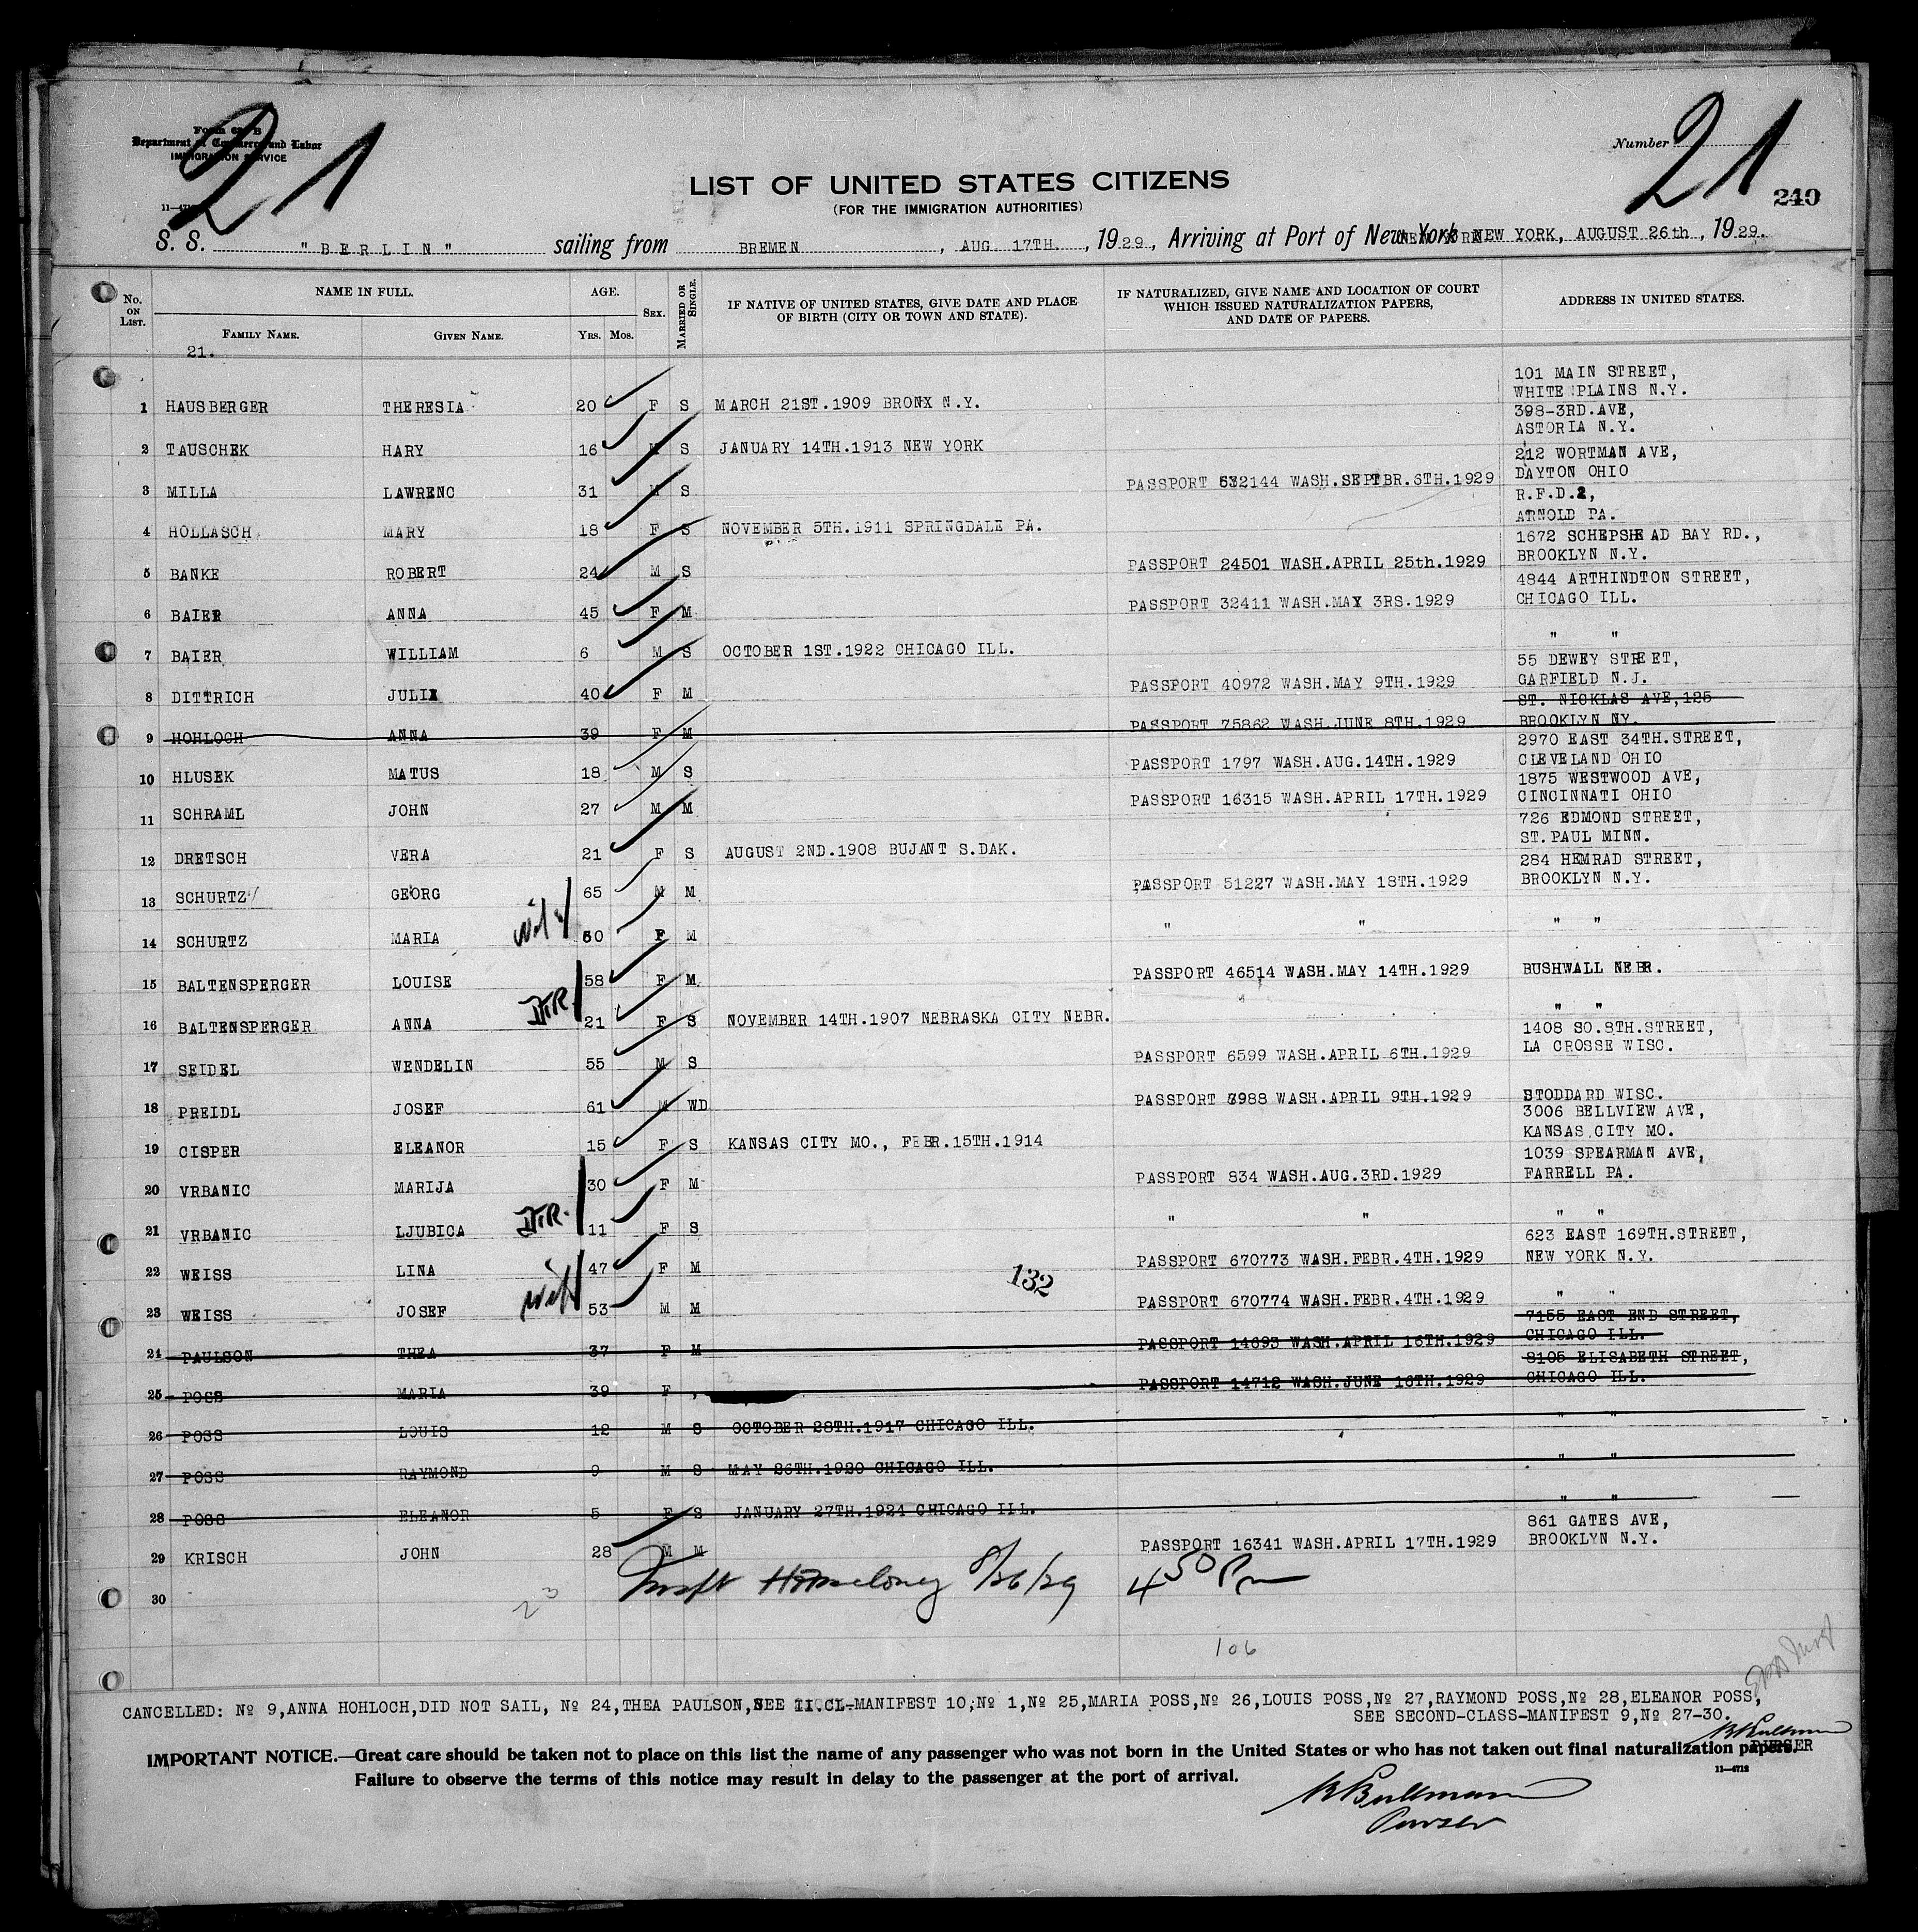 21
21
Form 630 B
Department of Commerce and Labor
IMMIGRATION SERVICE
Number
240
LIST OF UNITED STATES CITIZENS
(FOR THE IMMIGRATION AUTHORITIES)
S. S. "BERLIN" sailing from BREMEN, AUG. 17TH., 1929, Arriving at Port of New York NEW YORK, AUGUST 26th, 1929.
No. ON LIST. NAME IN FULL. AGE. SEX. MARRIED OR SINGLE. IF NATIVE OF UNITED STATES, GIVE DATE AND PLACE OF BIRTH (CITY OR TOWN AND STATE). IF NATURALIZED, GIVE NAME AND LOCATION OF COURT WHICH ISSUED NATURALIZATION PAPERS, AND DATE OF PAPERS. ADDRESS IN UNITED STATES.
FAMILY NAME. GIVEN NAME. YRS. MOS.
21.
1 HAUSBERGER THERESIA 20 F S MARCH 21ST.1909 BRONX N.Y. 101 MAIN STREET, WHITE PLAINS N.Y.
2 TAUSCHEK HARY 16 M S JANUARY 14TH.1913 NEW YORK 398-3RD.AVE, ASTORIA N.Y.
3 MILLA LAWRENC 31 M S PASSPORT 532144 WASH.SEPTBR.6TH.1929 212 WORTMAN AVE, DAYTON OHIO
4 HOLLASCH MARY 18 F S NOVEMBER 5TH.1911 SPRINGDALE PA. R.F.D.2, ARNOLD PA.
5 BANKE ROBERT 24 M S PASSPORT 24501 WASH.APRIL 25th.1929 1672 SCHEPSHEAD BAY RD., BROOKLYN N.Y.
6 BAIER ANNA 45 F M PASSPORT 32411 WASH.MAY 3RS.1929 4844 ARTHINDTON STREET, CHICAGO ILL.
7 BAIER WILLIAM 6 M S OCTOBER 1ST.1922 CHICAGO ILL. " "
8 DITTRICH JULIA 40 F M PASSPORT 40972 WASH.MAY 9TH.1929 55 DEWEY STREET, GARFIELD N.J.
9 HOHLOCH ANNA 39 F M PASSPORT 75862 WASH.JUNE 8TH.1929 ST. NICKLAS AVE,125 BROOKLYN NY.
10 HLUSEK MATUS 18 M S PASSPORT 1797 WASH.AUG.14TH.1929 2970 EAST 34TH.STREET, CLEVELAND OHIO
11 SCHRAML JOHN 27 M M PASSPORT 16315 WASH.APRIL 17TH.1929 1875 WESTWOOD AVE, CINCINNATI OHIO
12 DRETSCH VERA 21 F S AUGUST 2ND.1908 BUJANT S.DAK. 726 EDMOND STREET, ST.PAUL MINN.
13 SCHURTZ GEORG 65 M M PASSPORT 51227 WASH.MAY 18TH.1929 284 HEMRAD STREET, BROOKLYN N.Y.
14 SCHURTZ MARIA 60 F M " " " "
15 BALTENSPERGER LOUISE 58 F M PASSPORT 46514 WASH.MAY 14TH.1929 BUSHWALL NEBR.
16 BALTENSPERGER ANNA 21 F S NOVEMBER 14TH.1907 NEBRASKA CITY NEBR. " "
17 SEIDEL WENDELIN 55 M S PASSPORT 6599 WASH.APRIL 6TH.1929 1408 SO.8TH.STREET, LA CROSSE WISC.
18 PREIDL JOSEF 61 M WD PASSPORT 7988 WASH.APRIL 9TH.1929 STODDARD WISC.
19 CISPER ELEANOR 15 F S KANSAS CITY MO., FEBR.15TH.1914 3006 BELLVIEW AVE, KANSAS CITY MO.
20 VRBANIC MARIJA 30 F M PASSPORT 834 WASH.AUG.3RD.1929 1039 SPEARMAN AVE, FARRELL PA.
21 VRBANIC LJUBICA 11 F S " " " "
22 WEISS LINA 47 F M PASSPORT 670773 WASH.FEBR.4TH.1929 623 EAST 169TH.STREET, NEW YORK N.Y.
132
23 WEISS JOSEF 53 M M PASSPORT 670774 WASH.FEBR.4TH.1929 " "
24 PAULSON THEA 37 F M PASSPORT 14693 WASH.APRIL 16TH.1929 7155 EAST END STREET, CHICAGO ILL.
25 POSS MARIA 39 F PASSPORT 14712 WASH.JUNE 16TH.1929 8105 ELISABETH STREET, CHICAGO ILL.
26 POSS LOUIS 12 M S OCTOBER 28TH.1917 CHICAGO ILL. " "
27 POSS RAYMOND 9 M S MAY 26TH.1920 CHICAGO ILL. " "
28 POSS ELEANOR 5 F S JANUARY 27TH.1924 CHICAGO ILL. " "
29 KRISCH JOHN 28 M M PASSPORT 16341 WASH.APRIL 17TH.1929 861 GATES AVE, BROOKLYN N.Y.
30 23 8/26/29 4 50 Pm
106
CANCELLED: Nº 9,ANNA HOHLOCH,DID NOT SAIL, Nº 24,THEA PAULSON,SEE II.CL-MANIFEST 10,Nº 1,Nº 25,MARIA POSS,Nº 26,LOUIS POSS,Nº 27,RAYMOND POSS,Nº 28,ELEANOR POSS,
SEE SECOND-CLASS-MANIFEST 9,Nº 27-30.
IMPORTANT NOTICE.—Great care should be taken not to place on this list the name of any passenger who was not born in the United States or who has not taken out final naturalization papers.
PURSER
Failure to observe the terms of this notice may result in delay to the passenger at the port of arrival.
11—4712
Purser